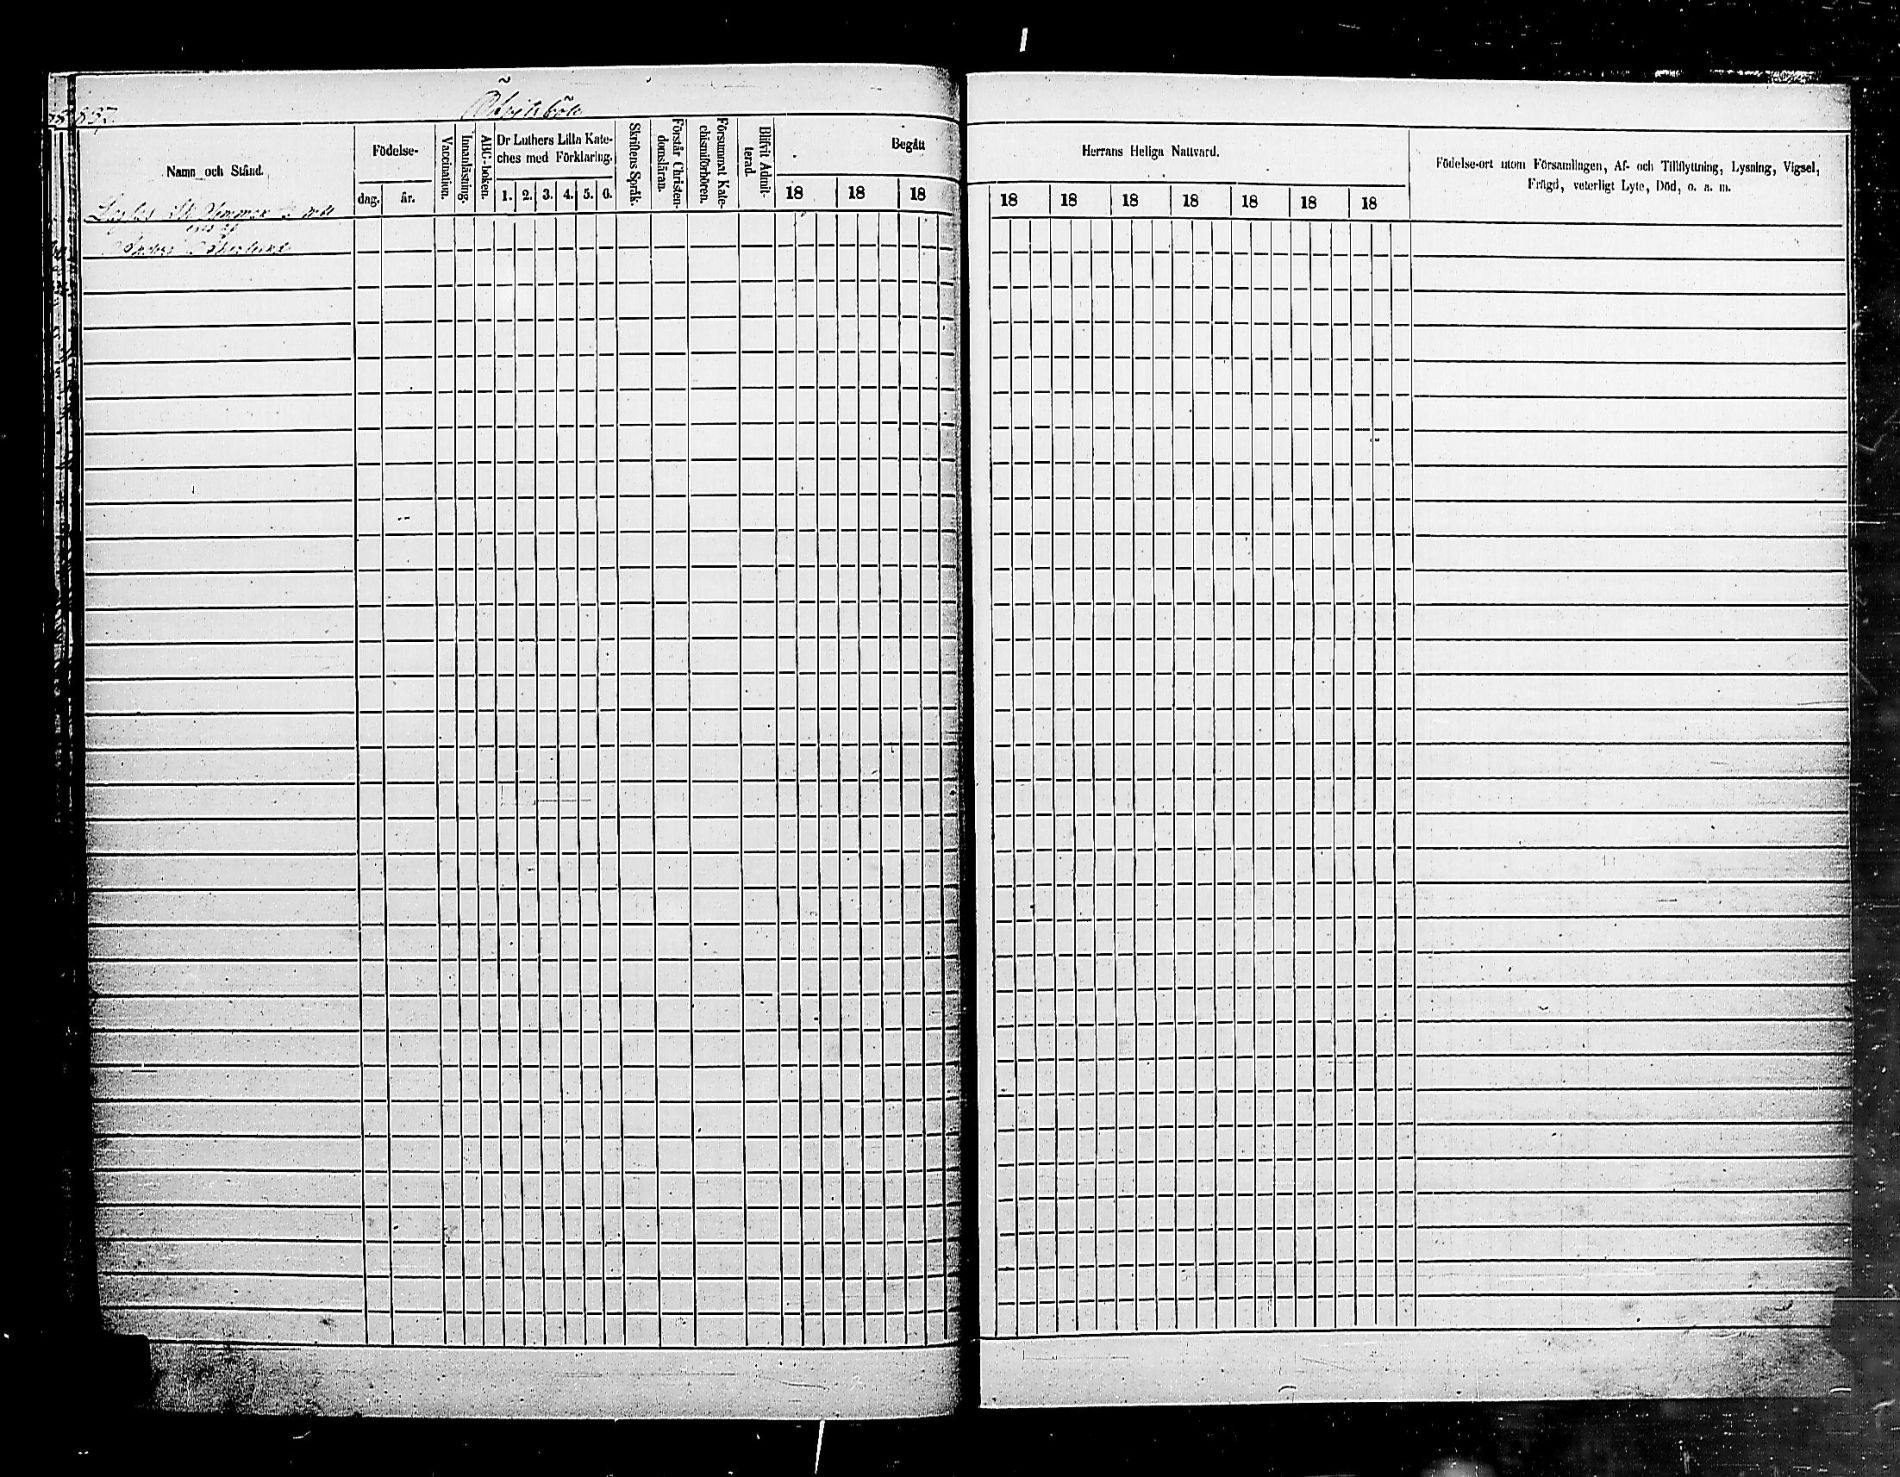 Namn och Stånd.
Födelse-
dag.
år.
Vaccination.
Innanläsning.
ABC-boken.
Dr Luthers Lilla Kate-
ches med Förklaring.
1. 2. 3. 4. 5. 6.
Skriftens Språk.
Förstår Christen-
domsläran.
Försummat Kate-
chismiförhören.
Blifvit Admit-
terad.
Begått
18 18 18
Herrans Heliga Nattvard.
18 18 18 18 18 18 18
Födelse-ort utom Församlingen, Af- och Tillflyttning, Lysning, Vigsel,
Frägd, veterligt Lyte, Död, o. s. m.